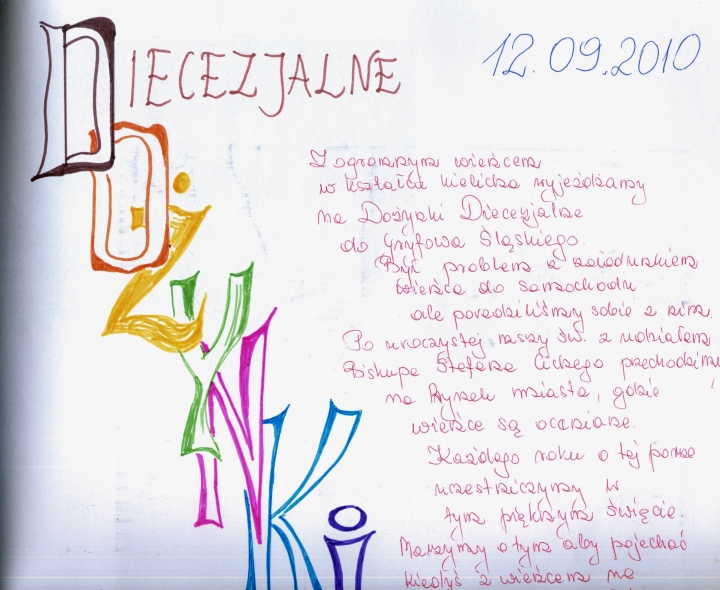 DIECEZJALNE
12.09.2010
DOŻYNKi
Z ogromnym wieńcem
w kształcie kielicha wyjeżdżamy
na Dożynki Diecezjalne
do Gryfowa Śląskiego.
Był problem z załadunkiem
wieńca do samochodu
ale poradziliśmy sobie z nim.
Po uroczystej mszy św. z udziałem
Biskupa Stefana Cichego przechodzimy
na Rynek miasta, gdzie
wieńce są oceniane.
Każdego roku o tej porze
uczestniczymy w
tym pięknym święcie.
Marzymy o tym aby pojechać
kiedyś z wieńcem na